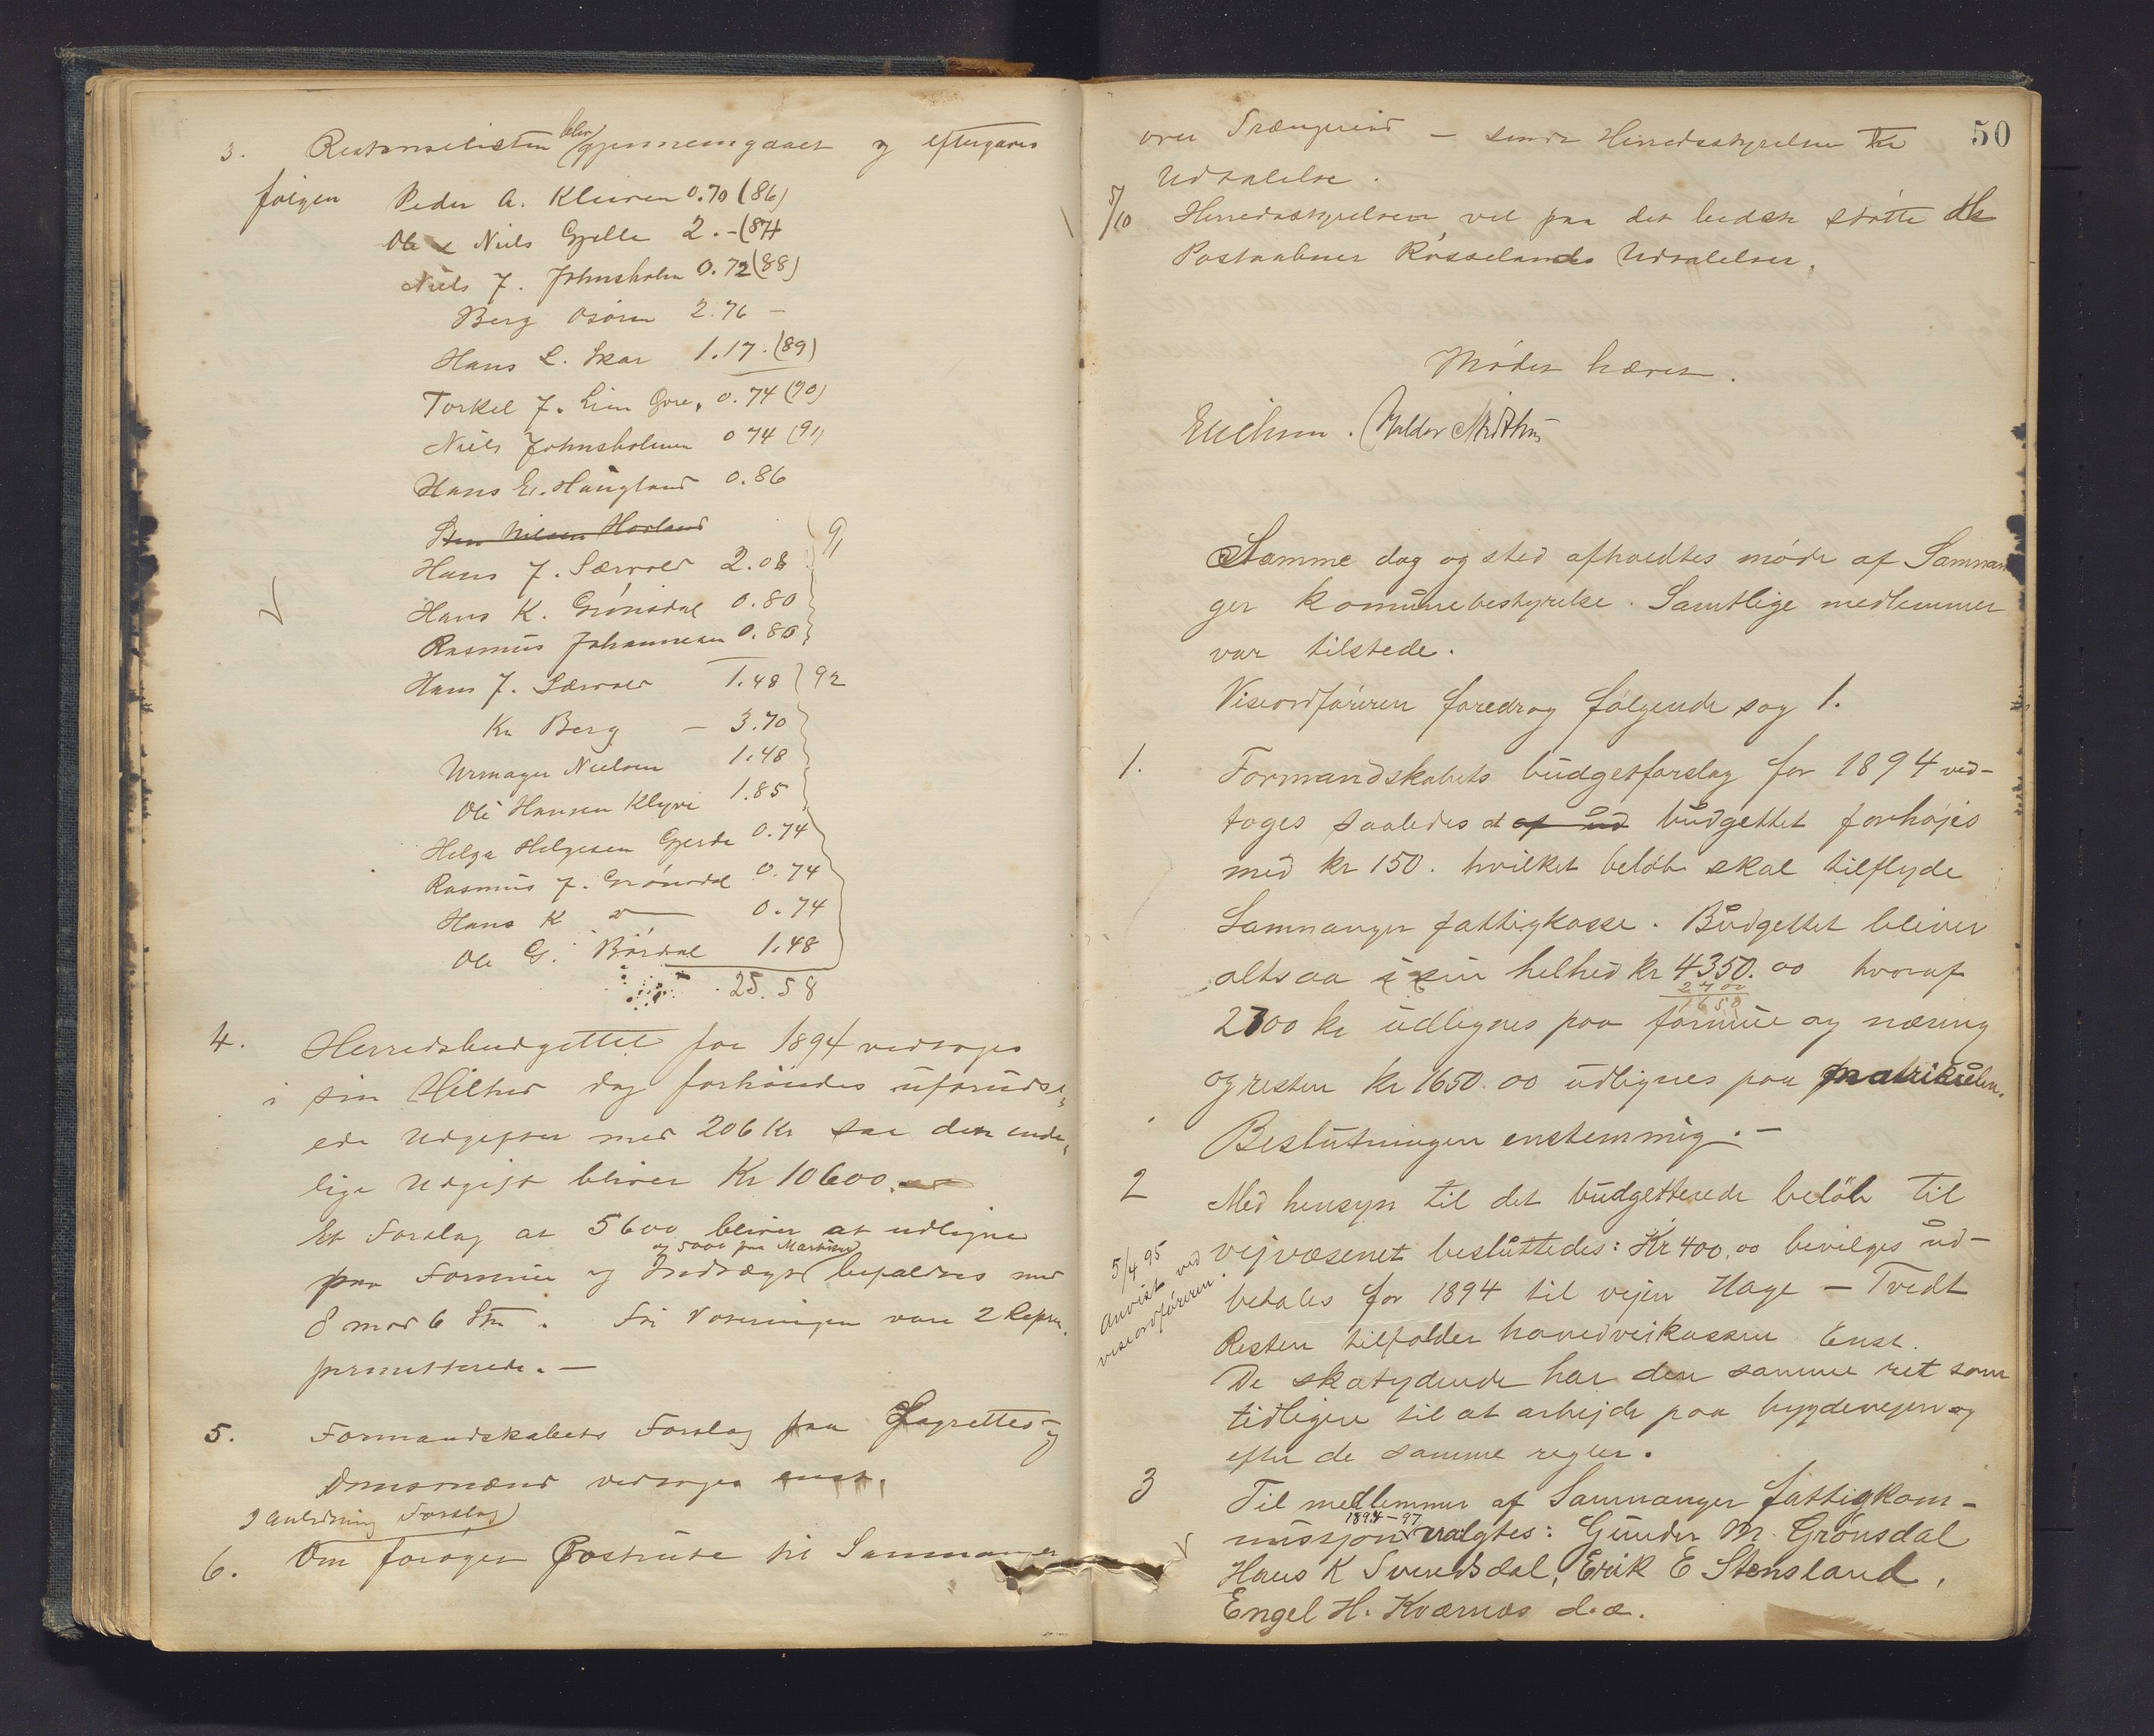 3. Restanselisten blev gjennemgaaet og eftergaves
følgen Peder A. Kleiven 0.70 (86)
Ole & Niels Gjelle 2.- (87)
Niels J. Johnsholm 0.72 (88)
Berg Osøren 2.76 -
Hans L. Skar 1.17. (89)
Torkel J. Lien Gre. 0.74 (90)
Niels Johnsholmen 0 74 (91)
Hans E. Haugland 0.86
Sten Nilsen Havland
Hans J. Lærvold 2.08 91
Hans K. Grønsdal 0.80
Rasmus Johannesen 0.80
Hans J. Lærvold 1.48 92
Kr Berg - 3.70
Urmager Nielsen 1.48
Ole Hansen Klyve 1.85
Helge Helgesen Gjerde 0.74
Rasmus J. Grønsdal 0.74
Hans K do 0.74
Ole G. Børdal 1.48
25.58
4. Herredsbudgettet for 1894 vedtoges
i sin Helhed dog forhøiedes uforudse,
ede Udgifter med 206 Kr saa den ende,
lige Udgift bliver Kr 10600.
Et Forslag at 5600 bliver at udligne
og 5000 paa Matrikul
paa Formue og Indtægt befaldes med
8 mod 6 Stm. Fri Voteringen vare 2 Repræ.
permitterede. —
5. Formandskabets Forslag paa Lagrettes- og
Domsmænd vedtoges enst.
I Anledning Forslag
6. Om forøget Postrute til Samnanger
50
over Trængereid - sendt Herredsstyrelsen til
Udtalelse.
5/10 Herredsstyrelsen vil paa det bedste støtte
Postaabner Røsselands Udtalelser.
Mødet hævet.
Erichsen. Haldor Midthus
Samme dag og sted afholdtes møde af Samnan
ger komunebestyrelse. Samtlige medlemmer
var tilstede.
Viseordføreren foredrog følgende sag 1.
1. Formandskabets budgetforslag for 1894 ved-
toges saaledes at af ud budgettet forhøjes
med kr 150. hvilket beløb skal tilflyde
Samnanger fattigkasse. Budgettet bliver
altsaa i sin helhed kr 4350.00 hvoraf
2700
1650
2700 kr udlignes paa formue og næring
og resten kr 1650.00 udlignes paa matrikulen.
Beslutningen enstemmig. -
2 Med hensyn til det budgetterede beløb til
vejvæsenet besluttedes: Kr 400,00 bevilges ud-
5/4 95
anvist ved
viseordføreren.
betales for 1894 til vejen Hage - Tvedt
Resten tilfalder hovedveikassen Enst.
De skatydende har den samme ret som
tidligere til at arbejde paa bygdevejen og
efter de samme regler.
3 Til medlemmer af Samnanger fattigkom-
1894-97
missjon valgtes: Gunder M. Grønsdal
Hans K Svendsdal, Erik E Stensland,
Engel H. Kvernes d.æ.